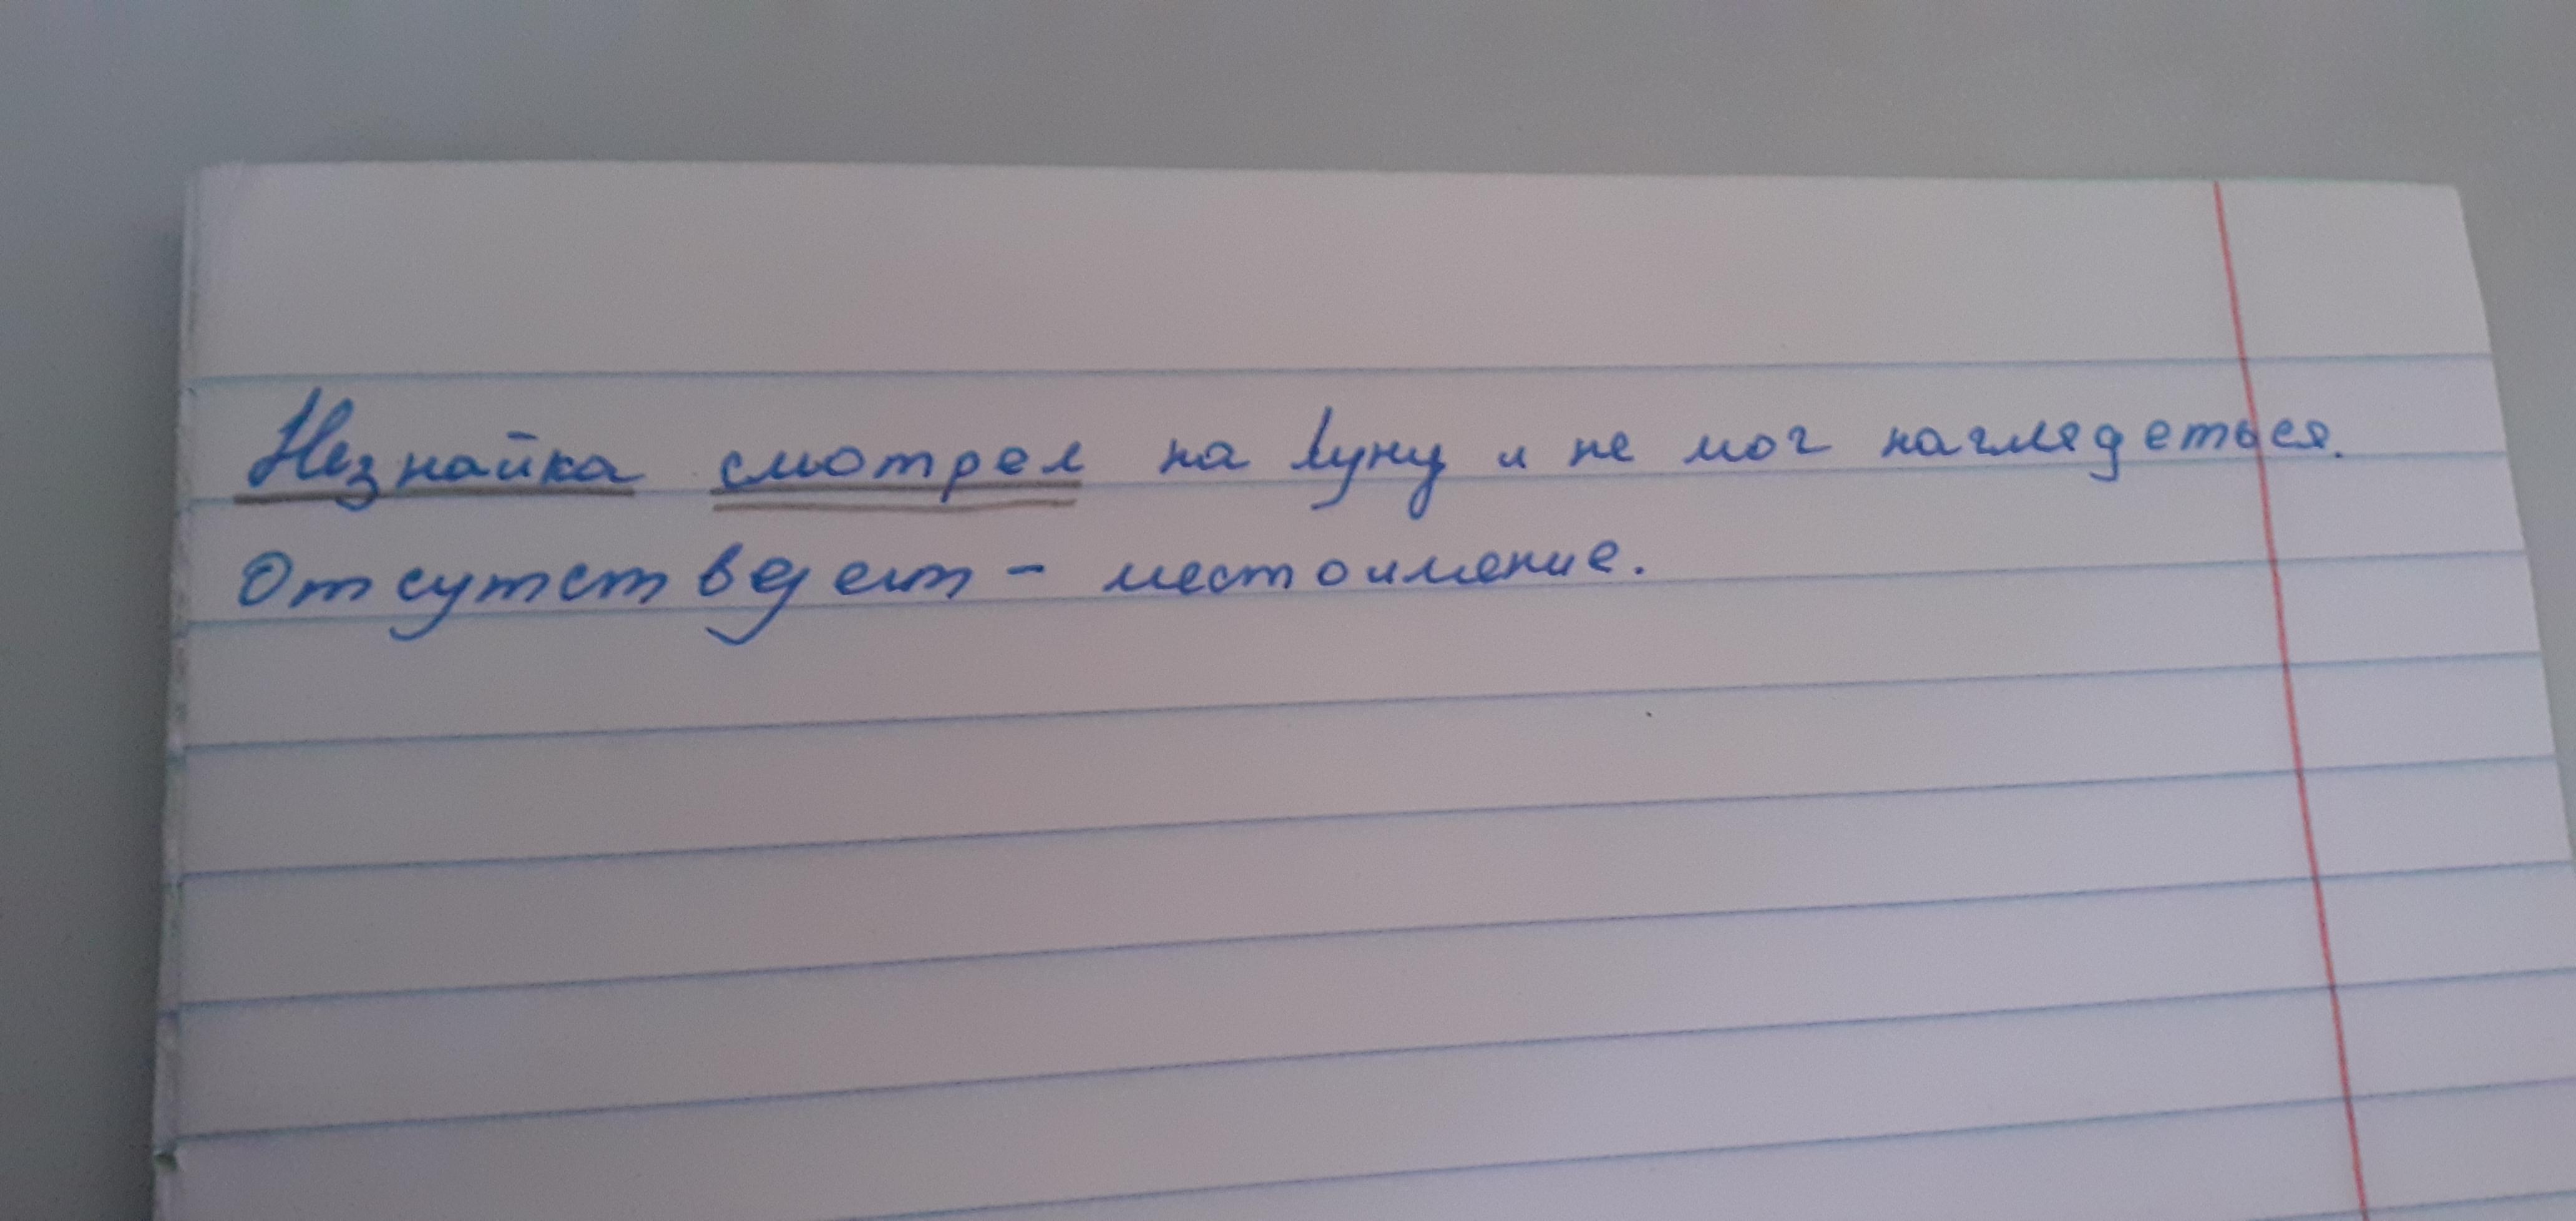 Незнайка смотрел на Луну и не мог наглядеться.
Отсутствует - местоимение.